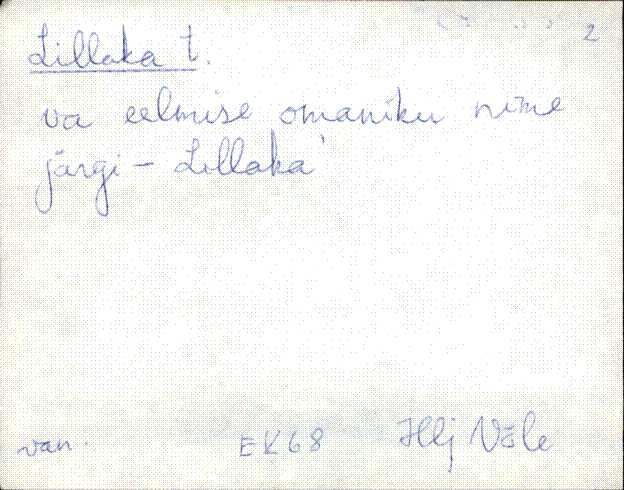 2
Lillaka t.
va eelmise omaniku nime
järgi - Lillaka'
van. EK68 Hlj Võle